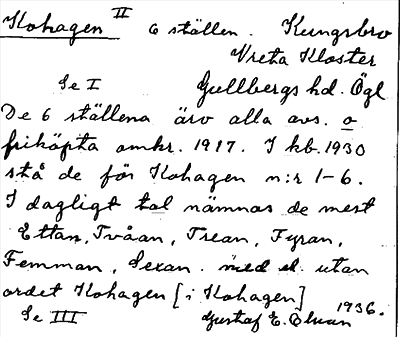 Kohagen II 6 ställen. Kungsbro
Vreta Kloster
Se I Gullbergs hd. Ögl
De 6 ställena äro alla avs. o
friköpta omkr. 1917. I kb. 1930
stå de för Kohagen n:r 1-6.
I dagligt tal nämnas de mest
Ettan, Tvåan, Trean, Fyran,
Femman, Sexan. med el. utan
ordet Kohagen [i Kohagen]
Se III Gustaf E. Ölman 1936.